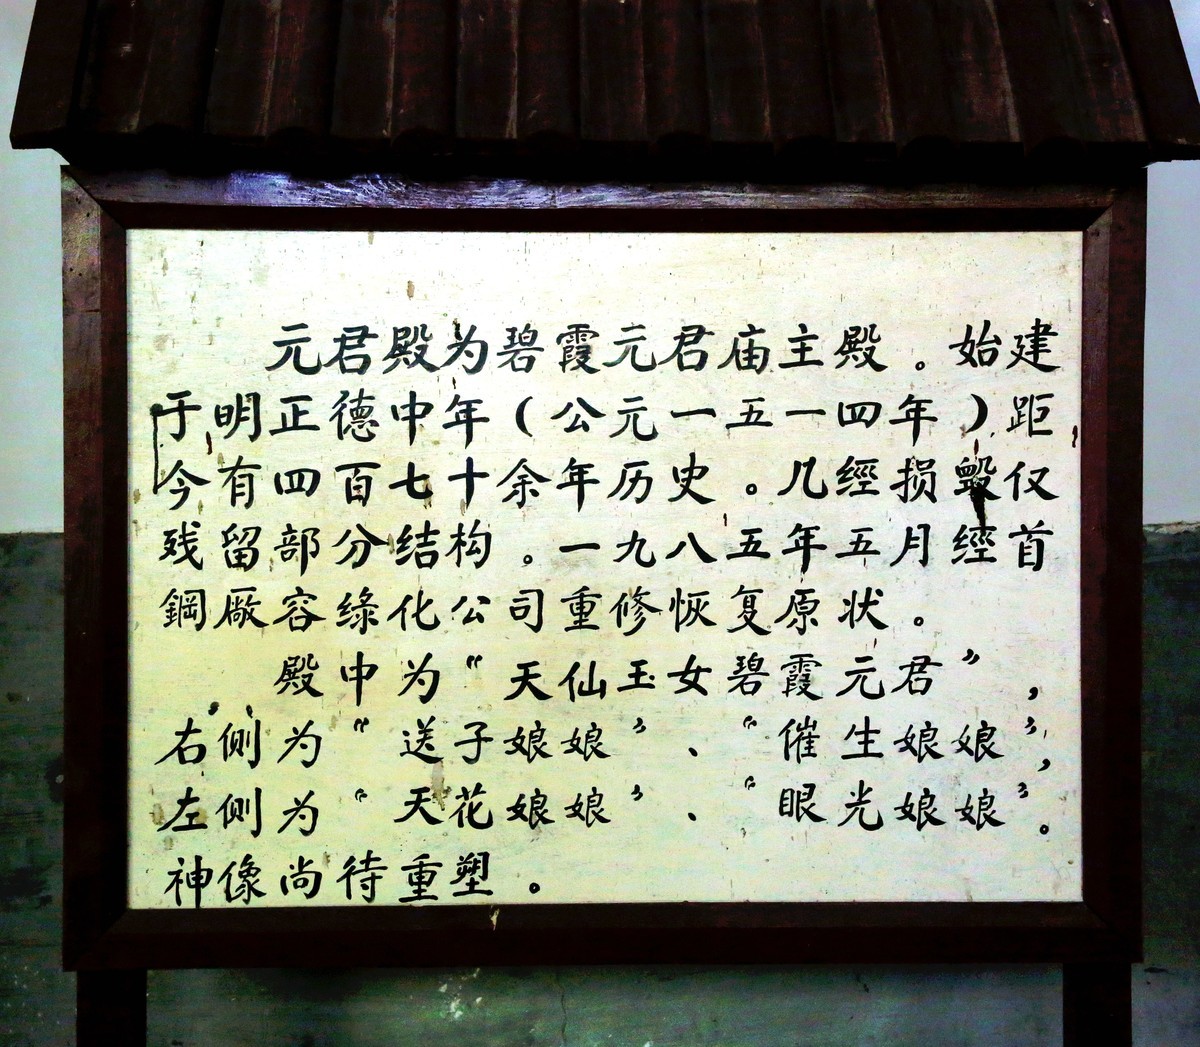 元君殿为碧霞元君庙主殿。始建
于明正德中年(公元一五一四年)距
今有四百七十余年历史。几經损毀仅
残留部分结构。一九八五年五月經首
鋼厰容綠化公司重修恢复原状。
殿中为“天仙玉女碧霞元君”,
右侧为“送子娘娘”、“催生娘娘”,
左侧为“天花娘娘”、“眼光娘娘”。
神像尚待重塑。